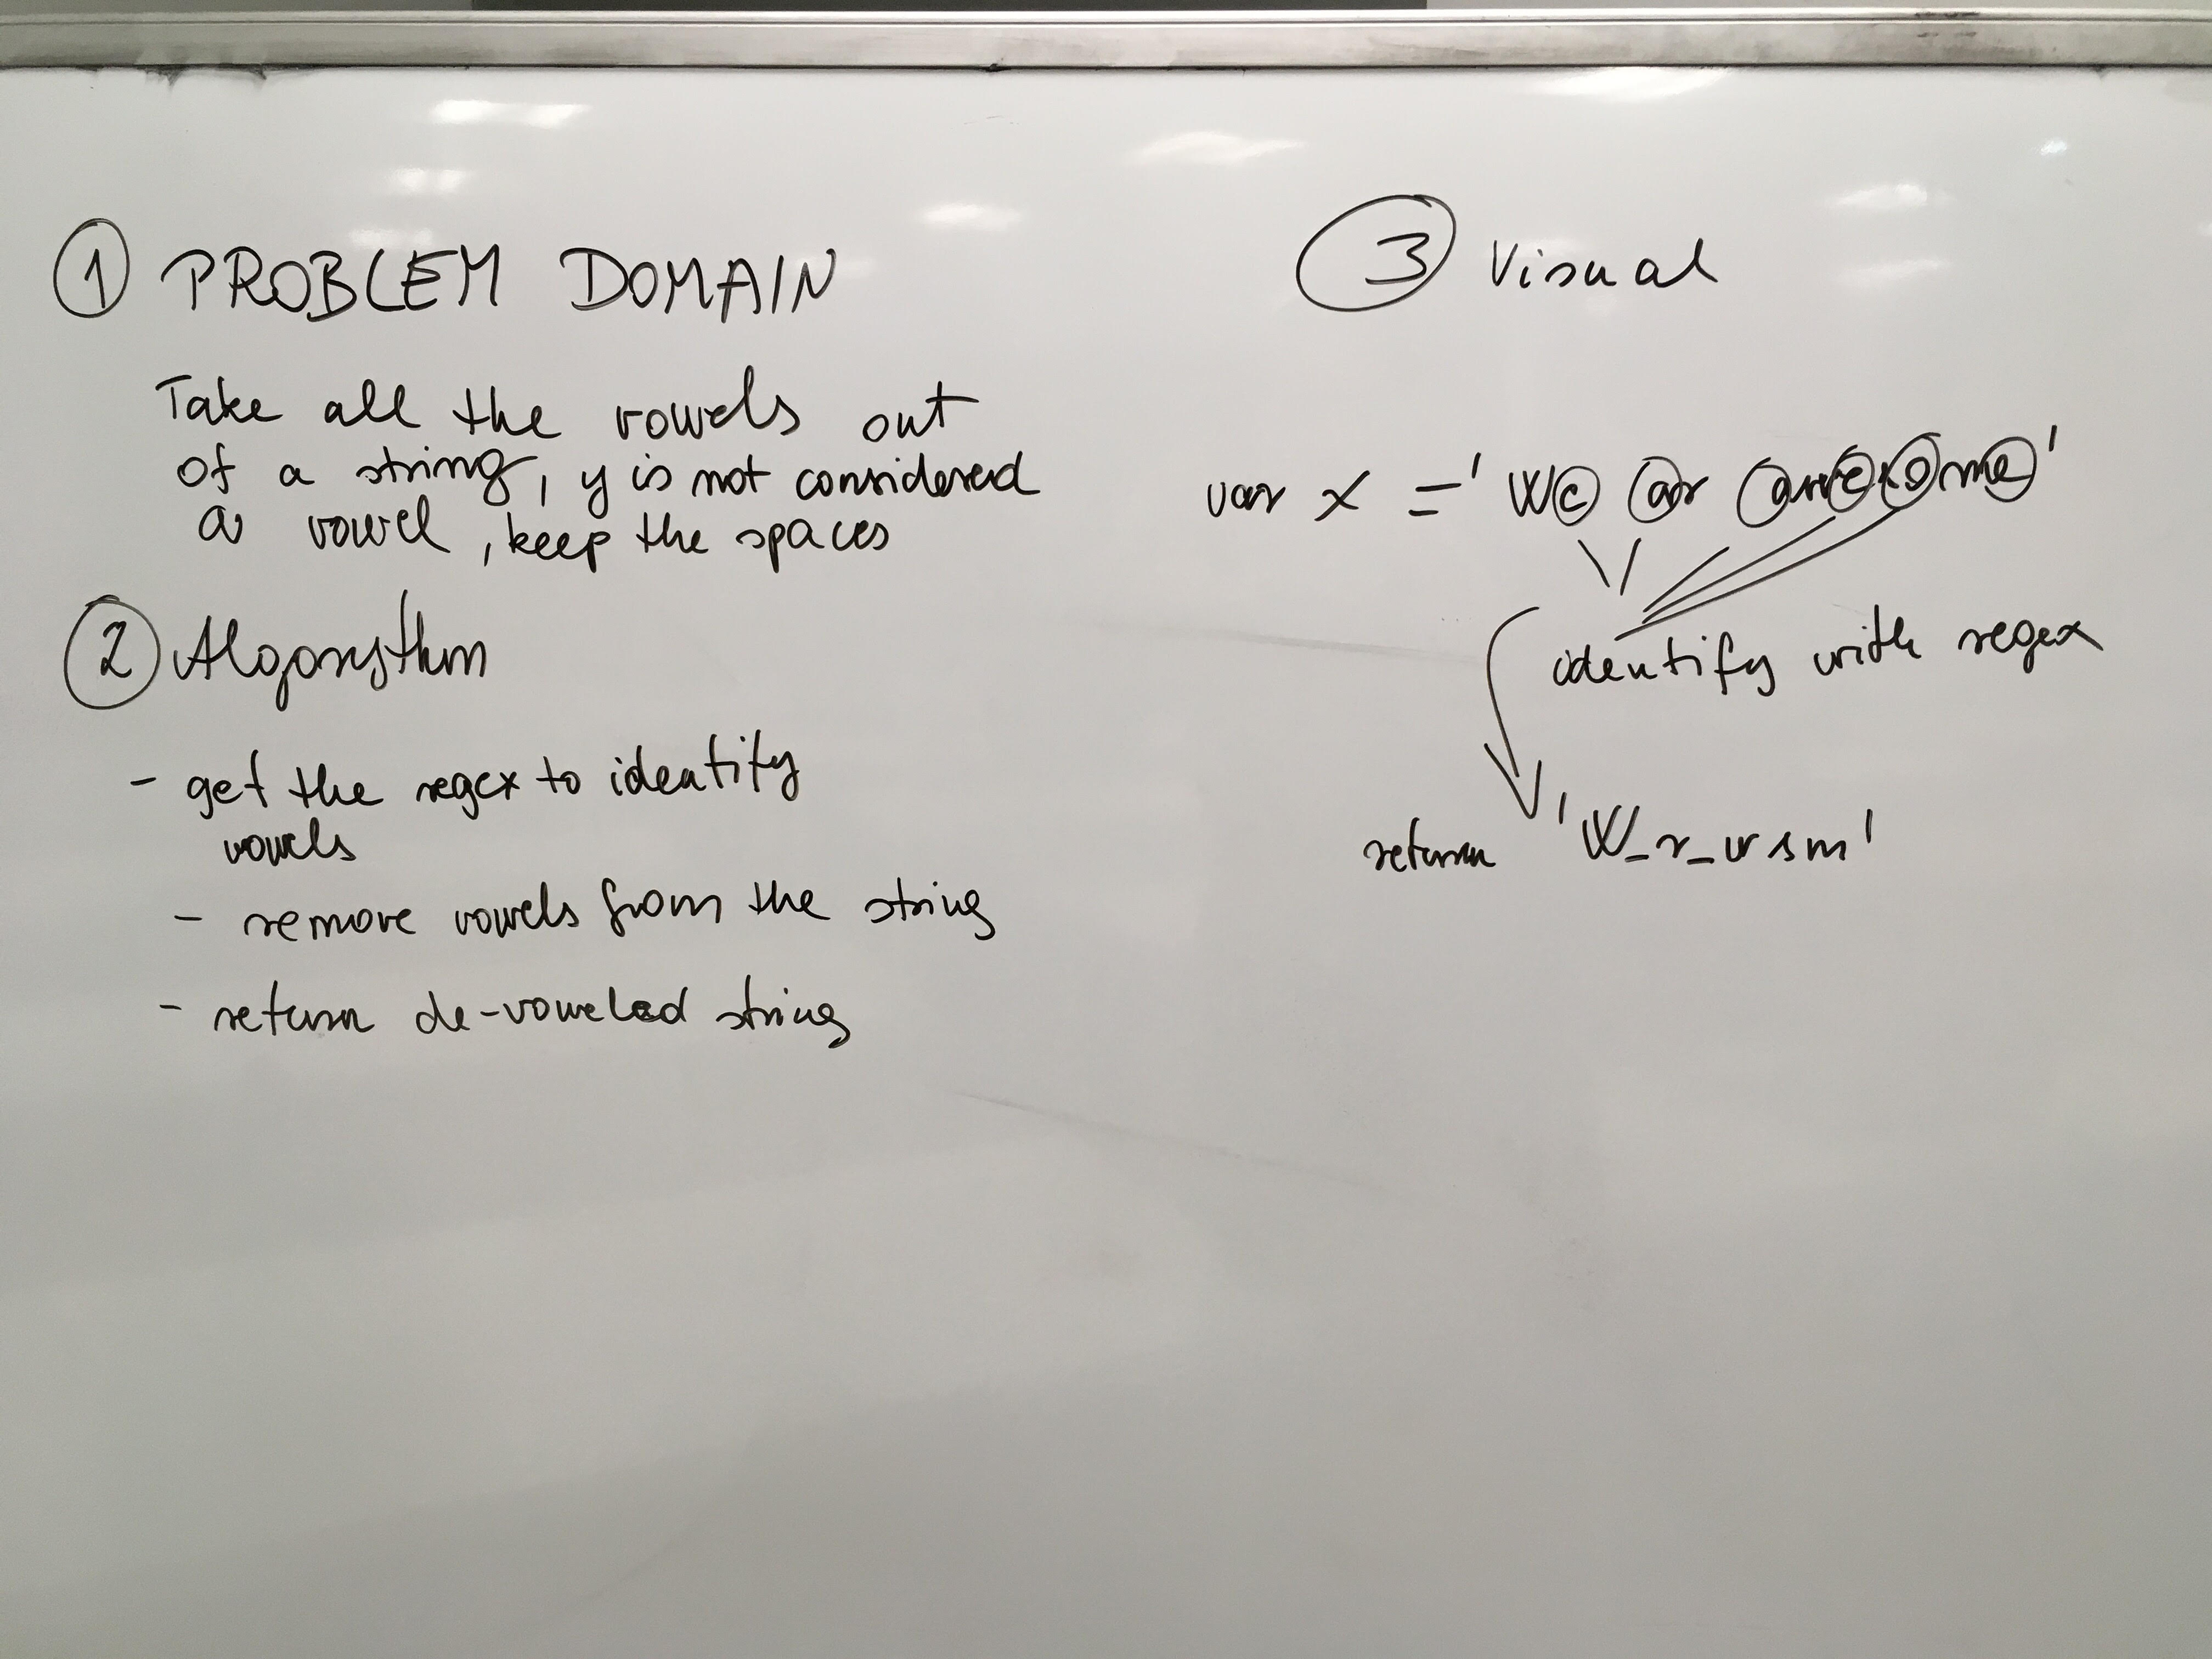 ① PROBLEM DOMAIN
Take all the vowels out
of a string, y is not considered
a vowel, keep the spaces
② Algorythm
- get the regex to identify
vowels
- remove vowels from the string
- return de-voweled string
③ Visual
var x = 'We ar awesome'
identify with regex
return 'W_r_wsm'